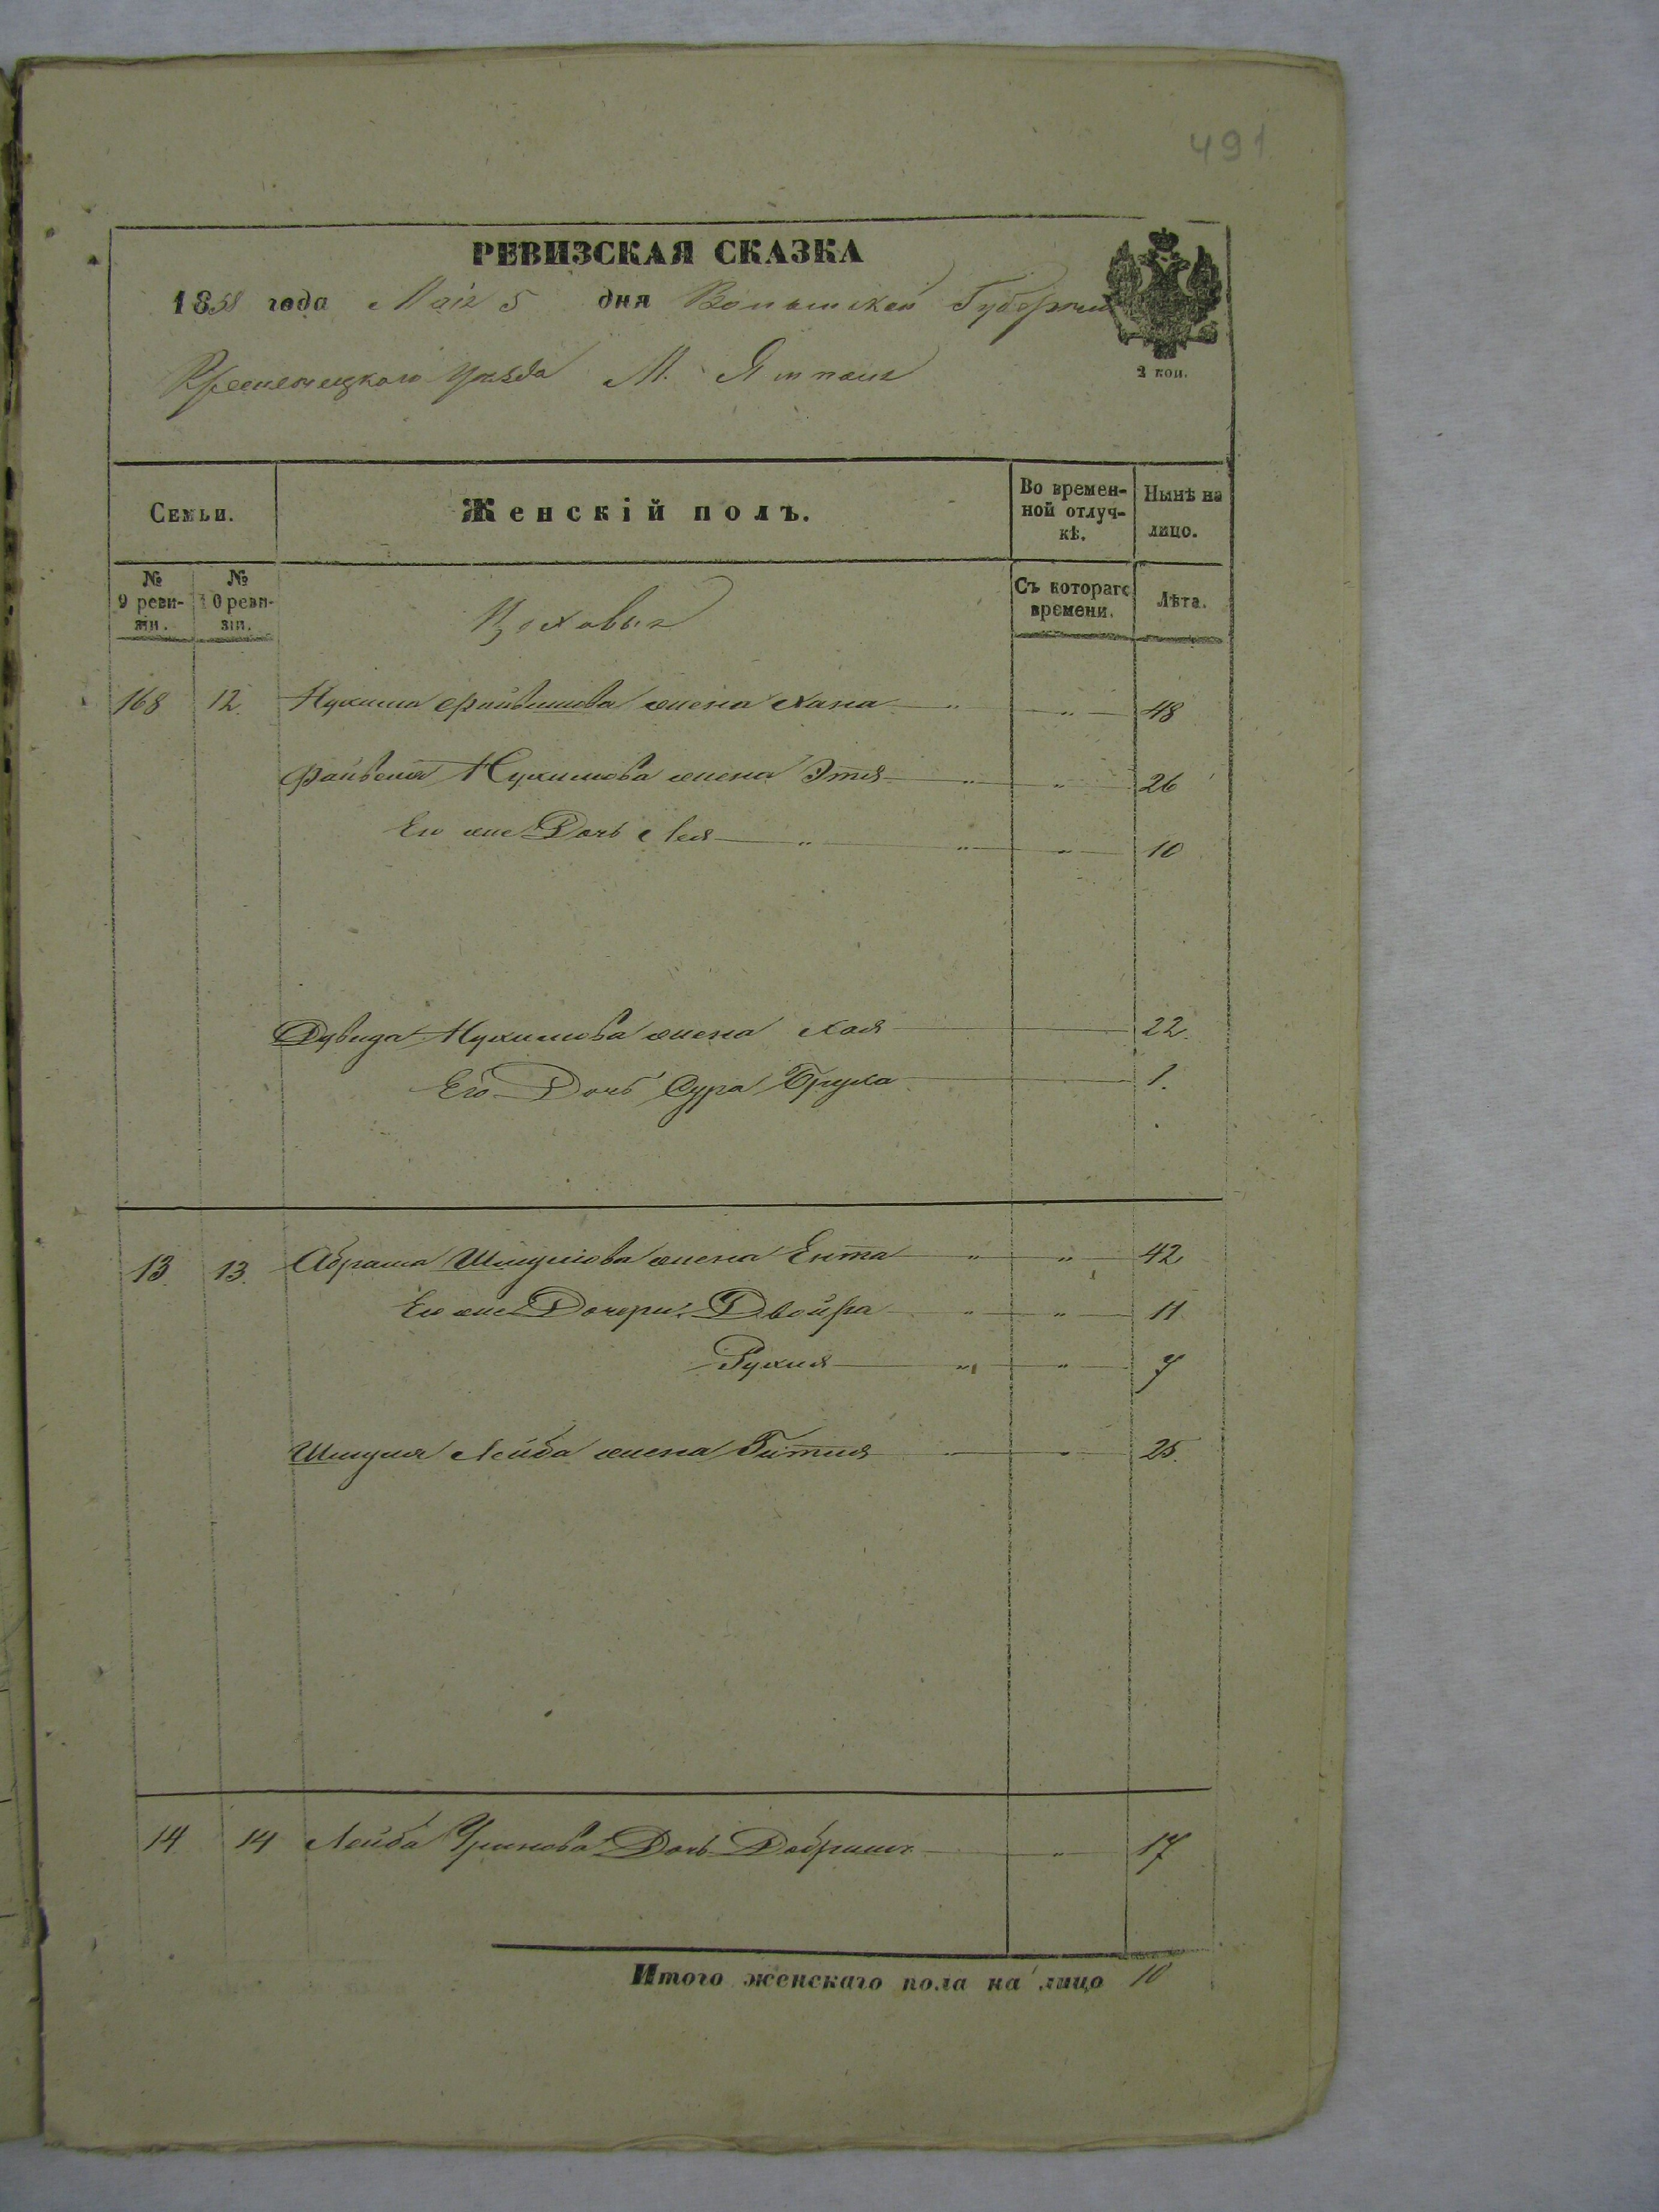 491
РЕВИЗСКАЯ СКАЗКА
1858 года Маія 5 дня Волынской Губерніи
Кременецкаго Уѣзда М. Ямполя
2 коп.
Семьи. Женскій полъ. Во временной отлучкѣ. Ныиѣ на лицо.
№ 9 ревизіи. № 10 ревизіи. Съ котораго времени. Лѣта.
Цеховыя
168 12. Нухима Файвишова жена Хана " " 48
Файвеля Нухимова жена Этля " " 26
Ею же Дочь Лея " " " 10
Дувида Нухимова жена Хая 22.
Его Дочь Сура Бруха 1.
13. 13. Абрама Шмулiова жена Ента " " 42
Ею же Дочери: Двойра " " 11
Рухля " " 7
Шмуля Лейба жена Гитля " " 25.
14 14 Лейба Дочь " 17
Итого женскаго пола на лицо 10